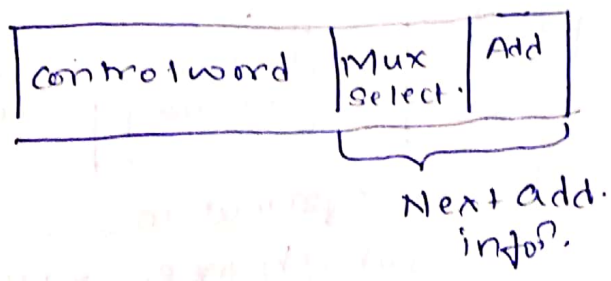 Controlword
Mux
Select.
Add
Next add.
infoⁿ.